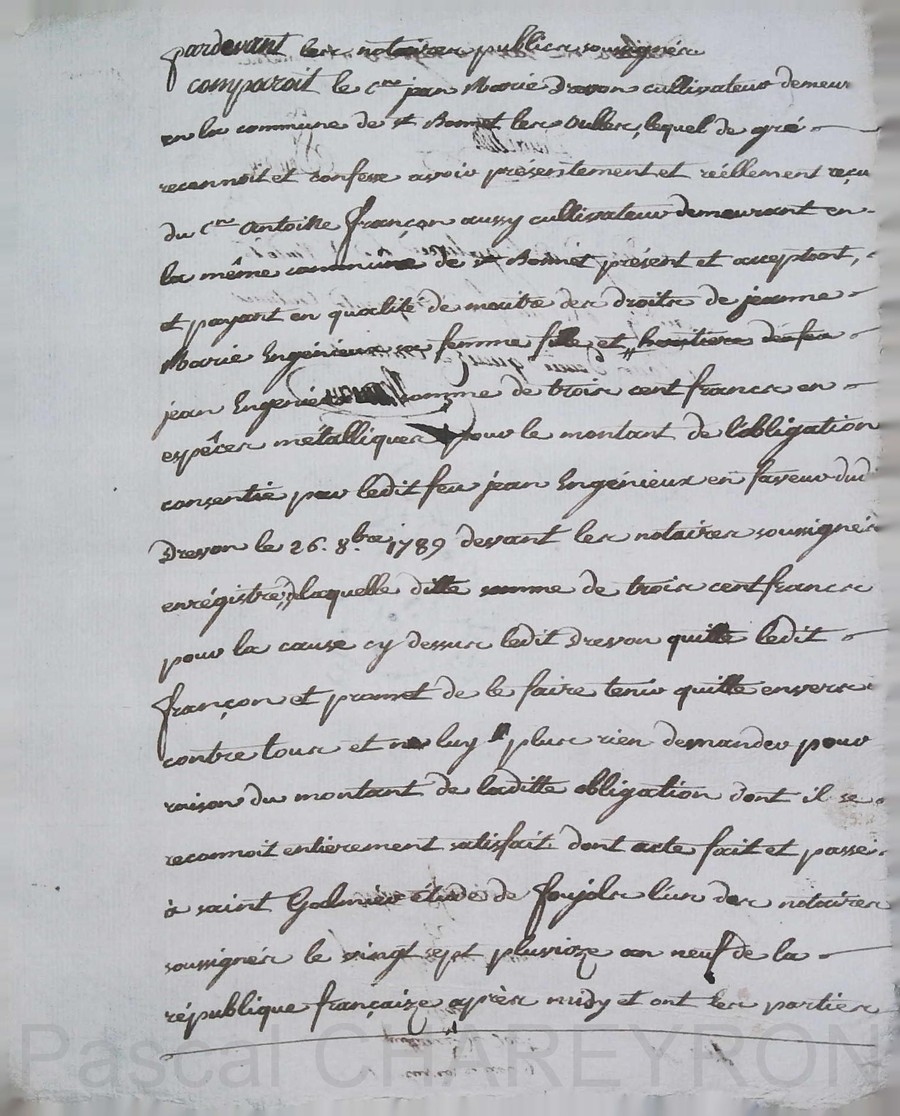 pardevant les notaires publics soussignés
comparoit le cne jean Marie Drevon cultivateur demeur
en la commune de st Bonnet les Oulles, lequel de gré
reconnoit et confesse avoir présentement et réellement reçu
du cne Antoine françon aussy cultivateur demeurant en
la même commune de st Bonnet présent et acceptant,
et payant en qualité de maitre des droits de jeanne
Marie Engénieux sa femme fille et héritiere de feu
jean Engénieux somme de trois cent francs en
espêces métalliques pour le montant de l'obligation
consentie par ledit feu jean Engénieux en faveur dud
Drevon le 26. 8.bre 1789 devant les notaires soussignés
enrégistrée, de laquelle ditte somme de trois cent francs
pour la cause cy dessus ledit Drevon quitte ledit
françon et promet de le faire tenir quitte envers et
contre tous et ne luy plus rien demander pour
raison du montant de laditte obligation dont il se
reconnoit entièrement satisfait. dont acte fait et passé
à saint Galmier étude de foujols l'un des notaires
soussignés le vingt sept pluvioze an neuf de la
république françaize après midy et ont les parties
Pascal CHAREYRON